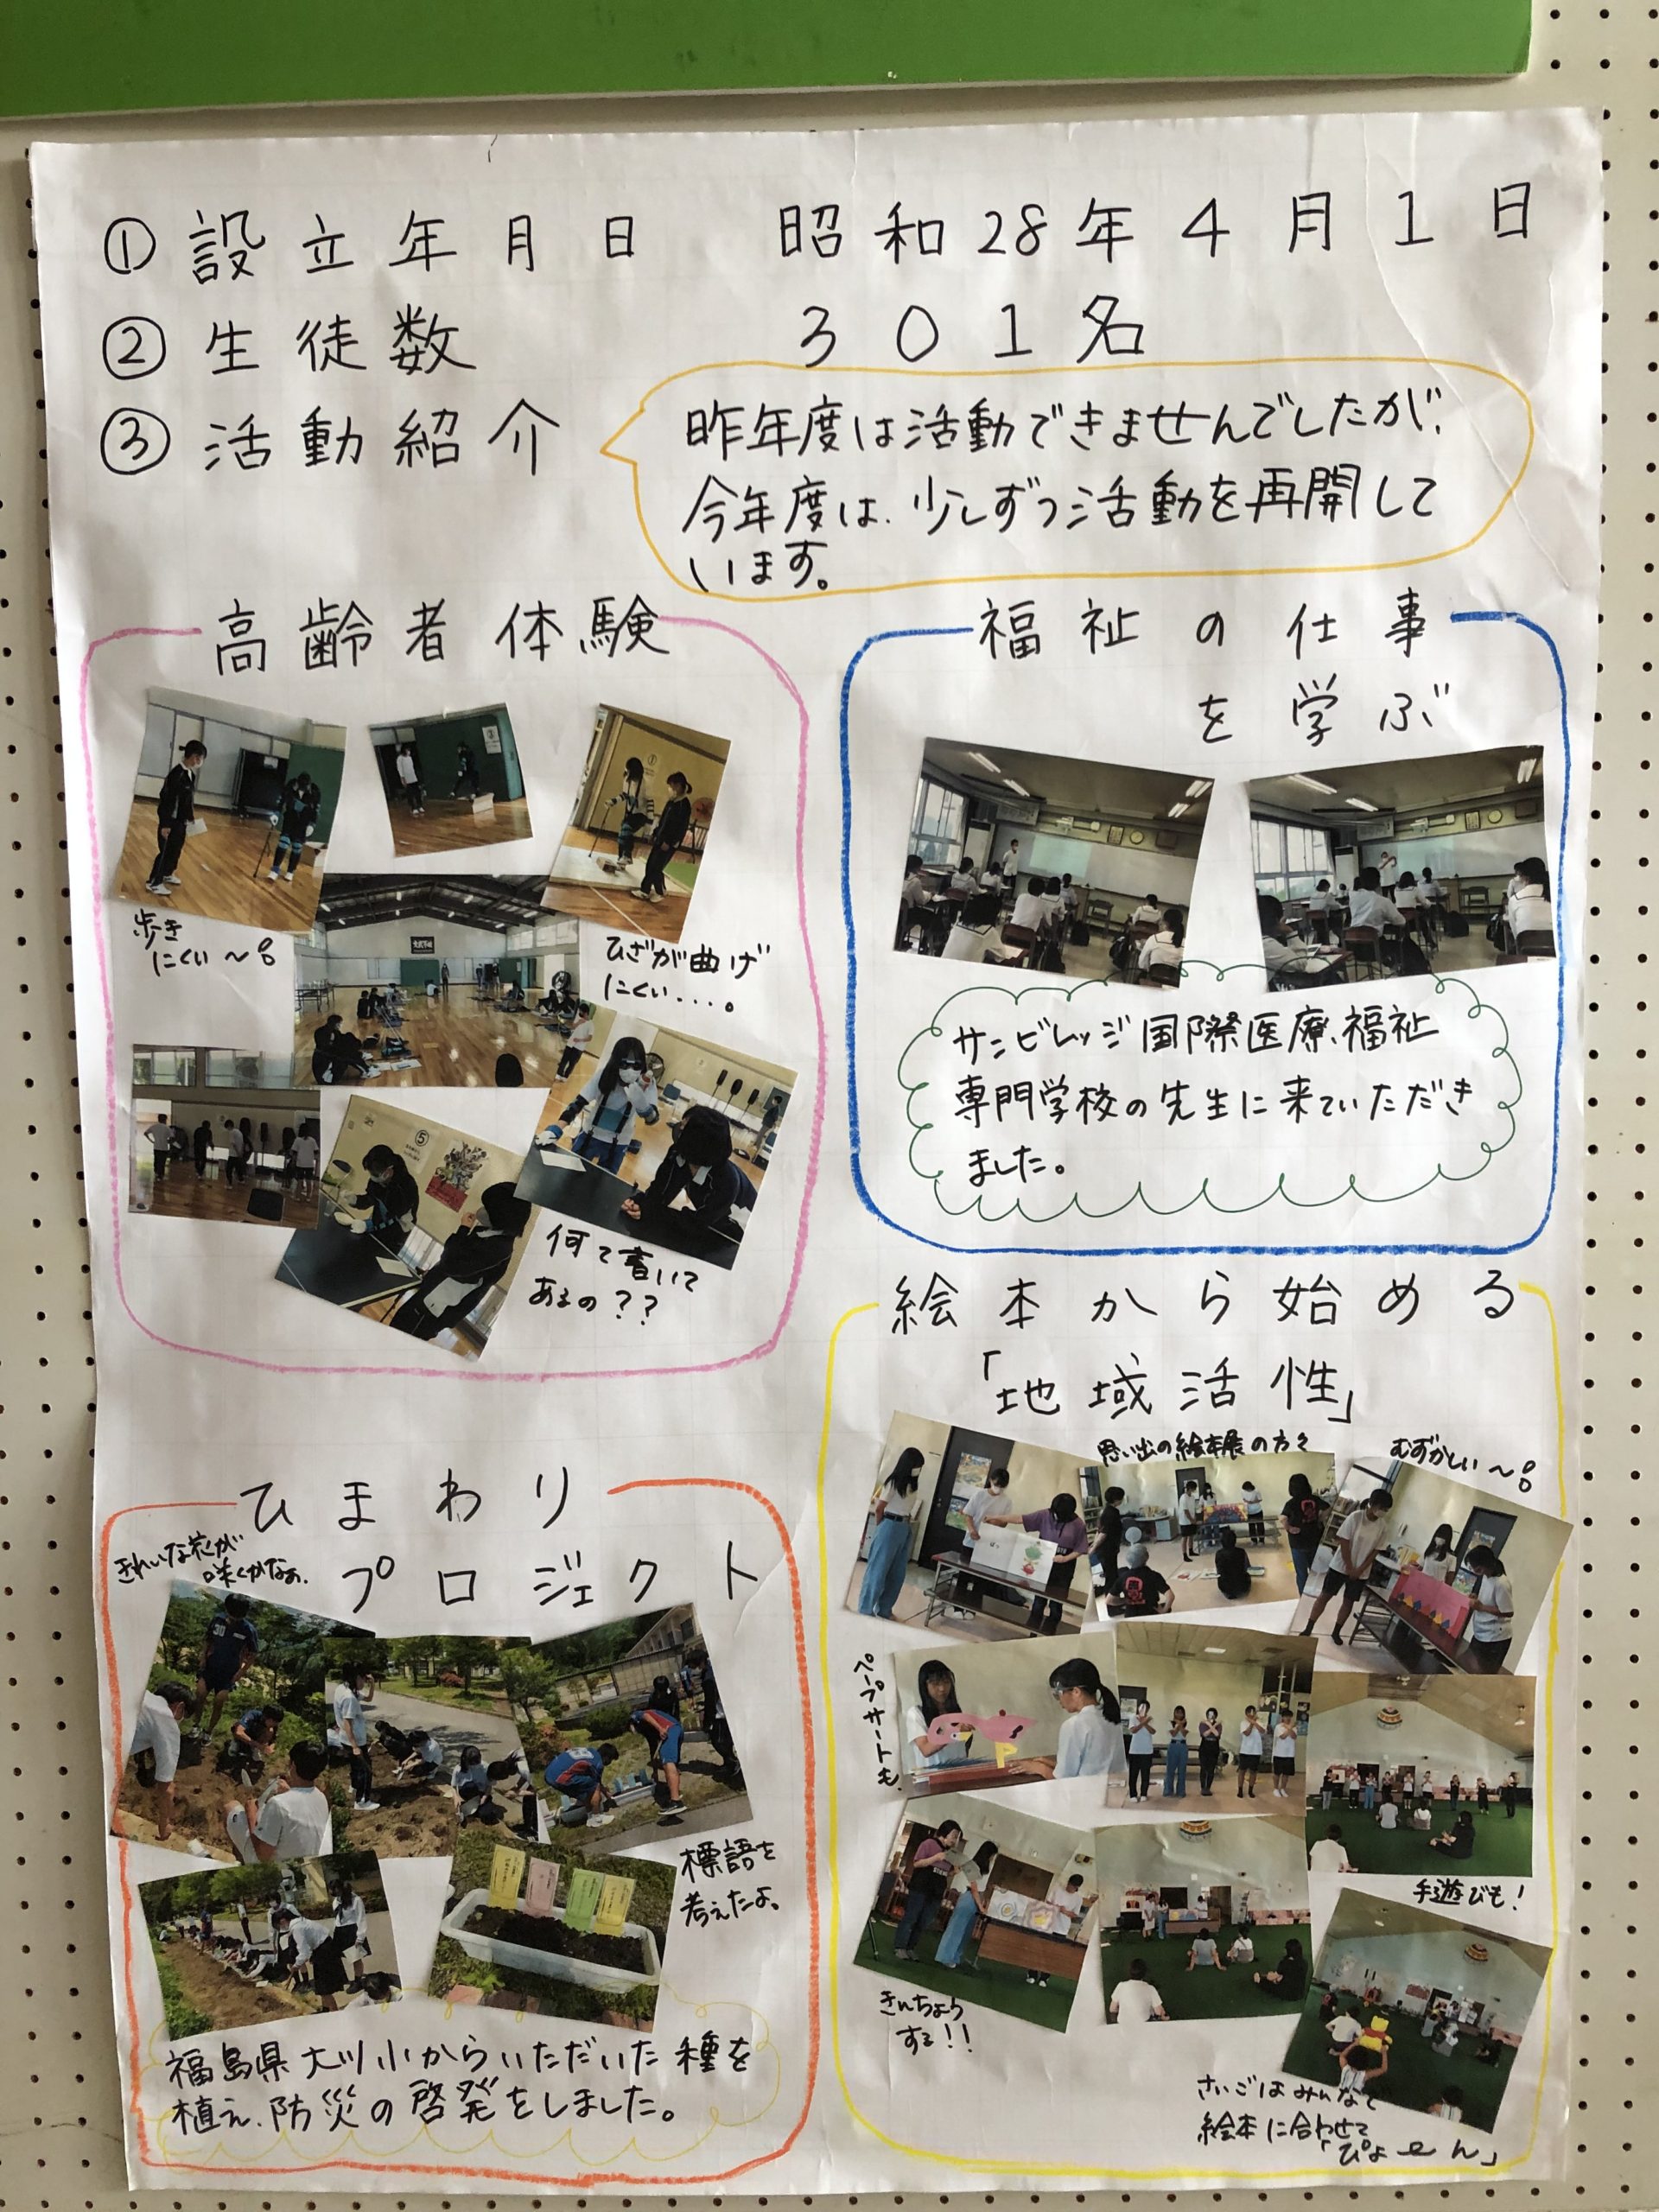 ①設立年月日 昭和28年4月1日
②生徒数 301名
③活動紹介
昨年度は活動できませんでしたが、
今年度は、少しずつ活動を再開して
います。
高齢者体験
歩き
にくい〜
ひざが曲げ
にくい....。
⑤
何て書いて
あるの??
福祉の仕事
を学ぶ
サンビレッジ国際医療福祉
専門学校の先生に来ていただき
ました。
ひまわり
プロジェクト
きれいな花が
咲くかなぁ.
30
標語を
考えたよ。
福島県大川小からいただいた種を
植え、防災の啓発をしました。
絵本から始める
「地域活性」
思い出の絵本展の方々
むずかしい〜
ペープサートも、
手遊びも!
きんちょう
する!!
さいごはみんなで
絵本に合わせて
「ぴょーん」